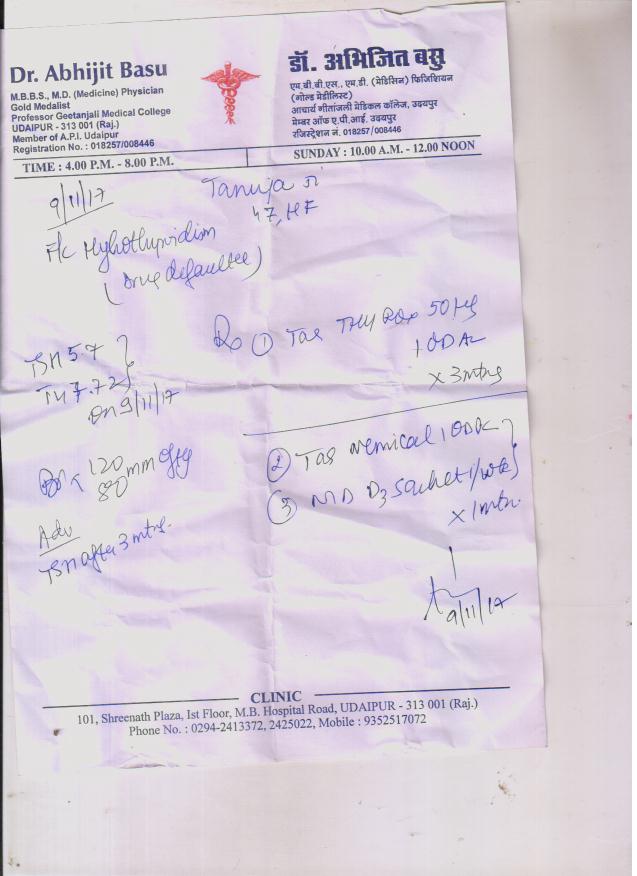 Dr. Abhijit Basu
M.B.B.S., M.D. (Medicine) Physician
Gold Medalist
Professor Geetanjali Medical College
UDAIPUR - 313 001 (Raj.)
Member of A.P.I. Udaipur
Registration No. : 018257/008446
डॉ. अभिजित बसु
एम.बी.बी.एस., एम.डी. (मेडिसिन) फिजिशियन
(गोल्ड मेडीलिस्ट)
आचार्य गीतांजली मेडिकल कॉलेज, उदयपुर
मेम्बर ऑफ ए.पी.आई. उदयपुर
रजिस्ट्रेशन नं. 018257/008446
TIME : 4.00 P.M. - 8.00 P.M.
SUNDAY : 10.00 A.M. - 12.00 NOON
9/11/17
Tanuja
47,
(Drug defaulter)
Rx ① Tab THYROX 50
1 OD AC
x 3 mths
7.72
on 9/11/17
② Tab 1 OD
120 mm Hg
80
③ D3 Sachet 1/wk
x 1 mth
Adv
after 3 mths
9/11/17
CLINIC
101, Shreenath Plaza, Ist Floor, M.B. Hospital Road, UDAIPUR - 313 001 (Raj.)
Phone No. : 0294-2413372, 2425022, Mobile : 9352517072